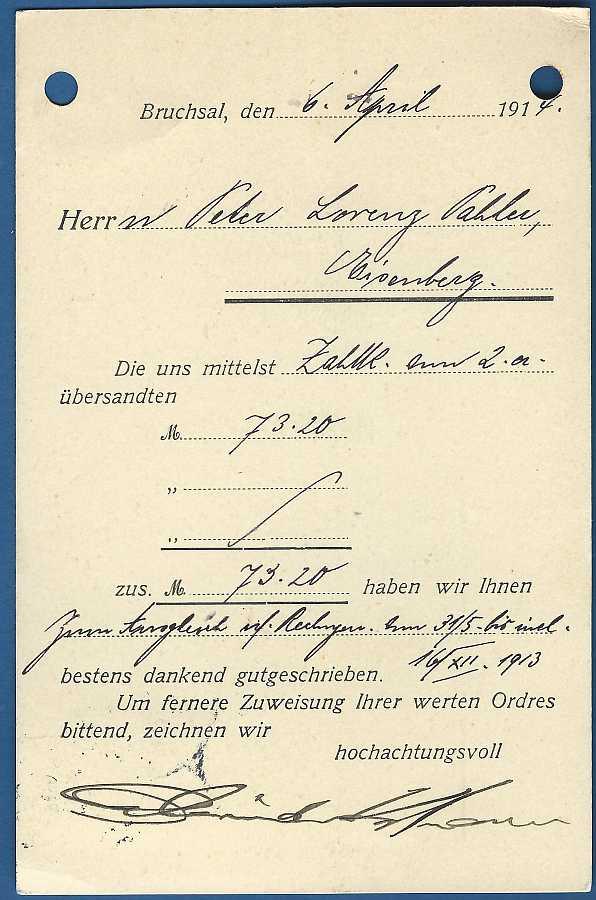 Bruchsal, den 6. April 1914.
Herrn Peter Lorenz
Eisenberg.
Die uns mittelst Zahlk. vom 2. a.
übersandten
M. 73.20
„
„
zus. M. 73.20 haben wir Ihnen
zum Ausgleich Rechngen. vom 31/5. bis incl.
16/XII. 1913
bestens dankend gutgeschrieben.
Um fernere Zuweisung Ihrer werten Ordres
bittend, zeichnen wir
hochachtungsvoll